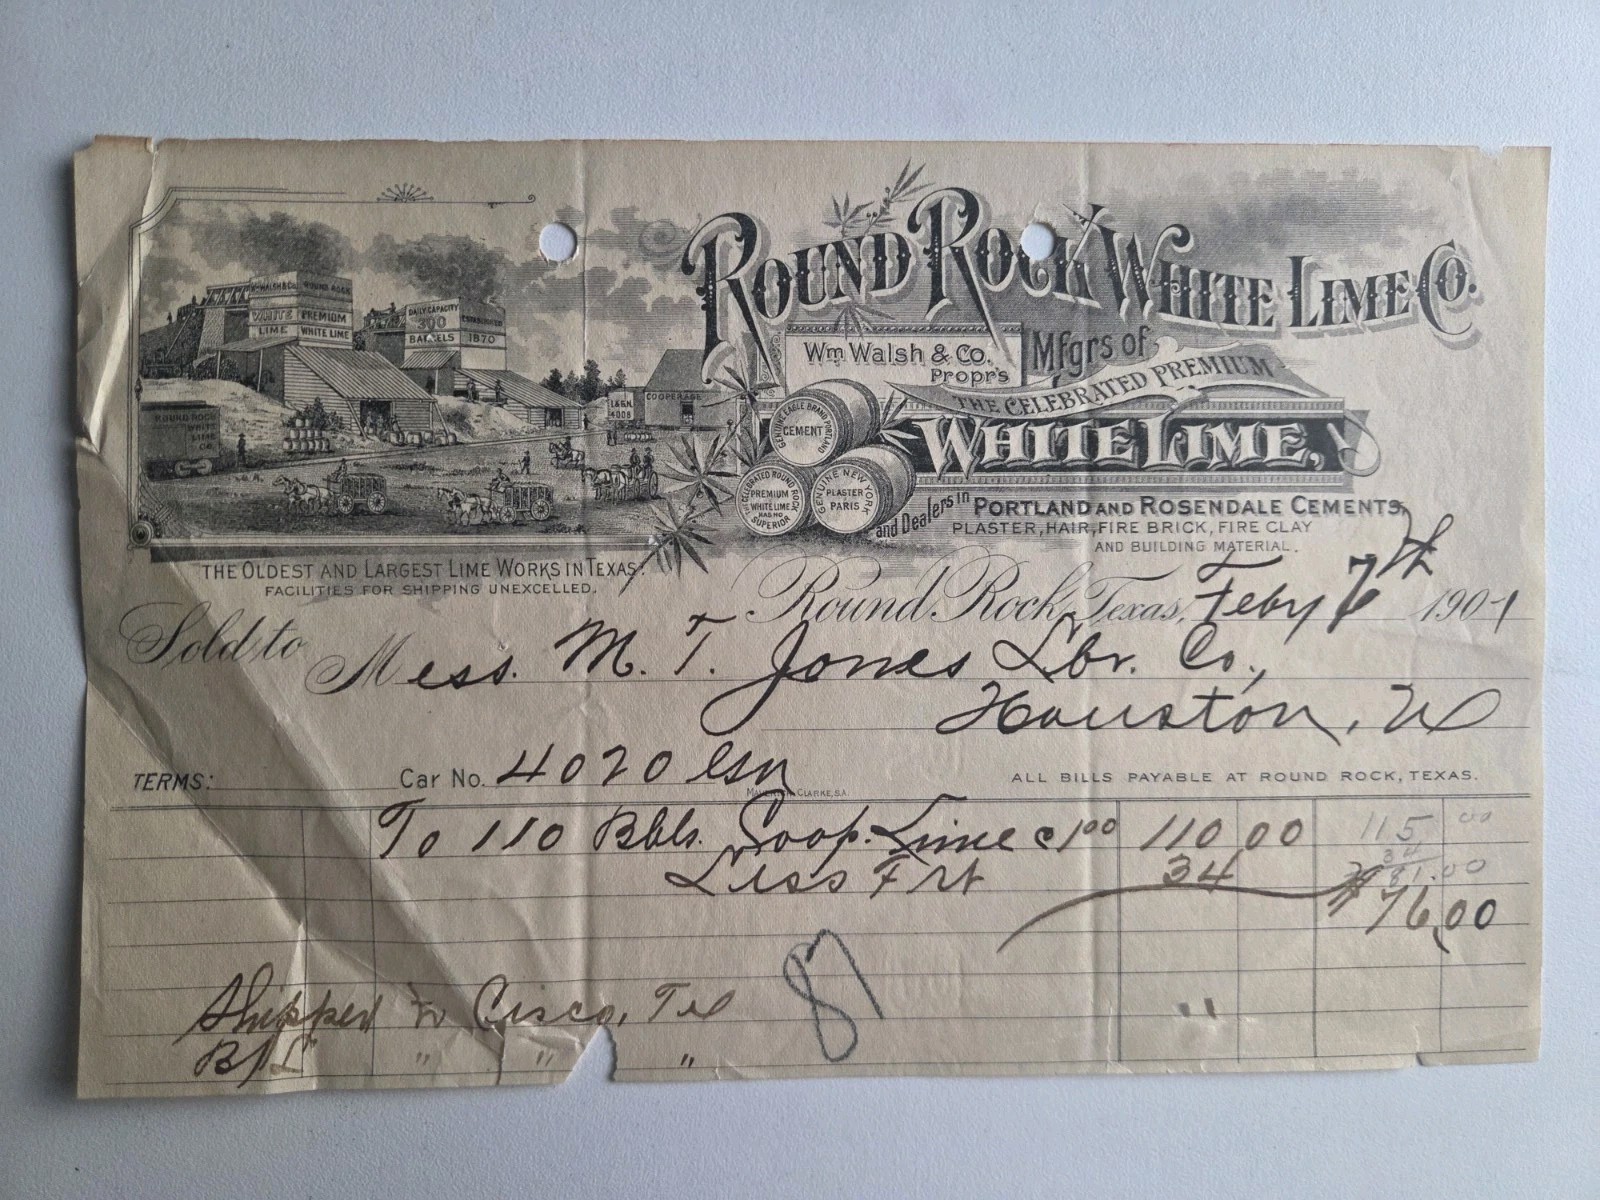 WM WALSH & CO. ROUND ROCK
WHITE PREMIUM
LIME WHITE LIME
DAILY CAPACITY
300 ESTABLISHED
BARRELS 1870
ROUND ROCK
WHITE
LIME
CO.
I.&G.N.
4008
COOPERAGE
ROUND ROCK WHITE LIME CO.
Wm Walsh & Co.
Propr's
Mfgrs of
THE CELEBRATED PREMIUM
WHITE LIME,
GENUINE EAGLE BRAND PORTLAND
CEMENT
THE CELEBRATED ROUND ROCK
PREMIUM
WHITE LIME
HAS NO
SUPERIOR
GENUINE NEW YORK
PLASTER
PARIS
and Dealers in PORTLAND AND ROSENDALE CEMENTS,
PLASTER, HAIR, FIRE BRICK, FIRE CLAY
AND BUILDING MATERIAL.
THE OLDEST AND LARGEST LIME WORKS IN TEXAS.
FACILITIES FOR SHIPPING UNEXCELLED.
Round Rock, Texas, Feby 7th 1901
Sold to Mess. M. T. Jones Lbr. Co.,
Houston,
TERMS: Car No. 4020
ALL BILLS PAYABLE AT ROUND ROCK, TEXAS.
MAVERICK CLARKE, S.A.
To 110 Bbls. Coop. Lime @ 1.00 110 00 115 00
34
Less Frt 34 81.00
$76.00
87
Shipped to Cisco, Tex
B/L " " "